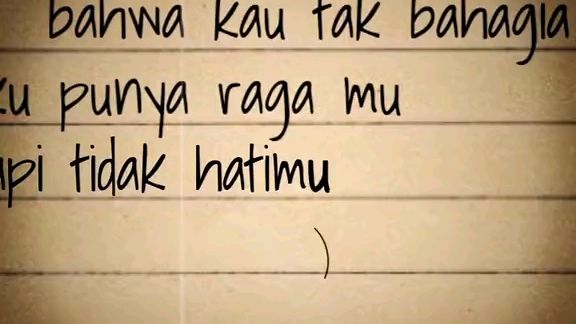 bahwa kau tak bahagia
ku punya raga mu
api tidak hatimu
)